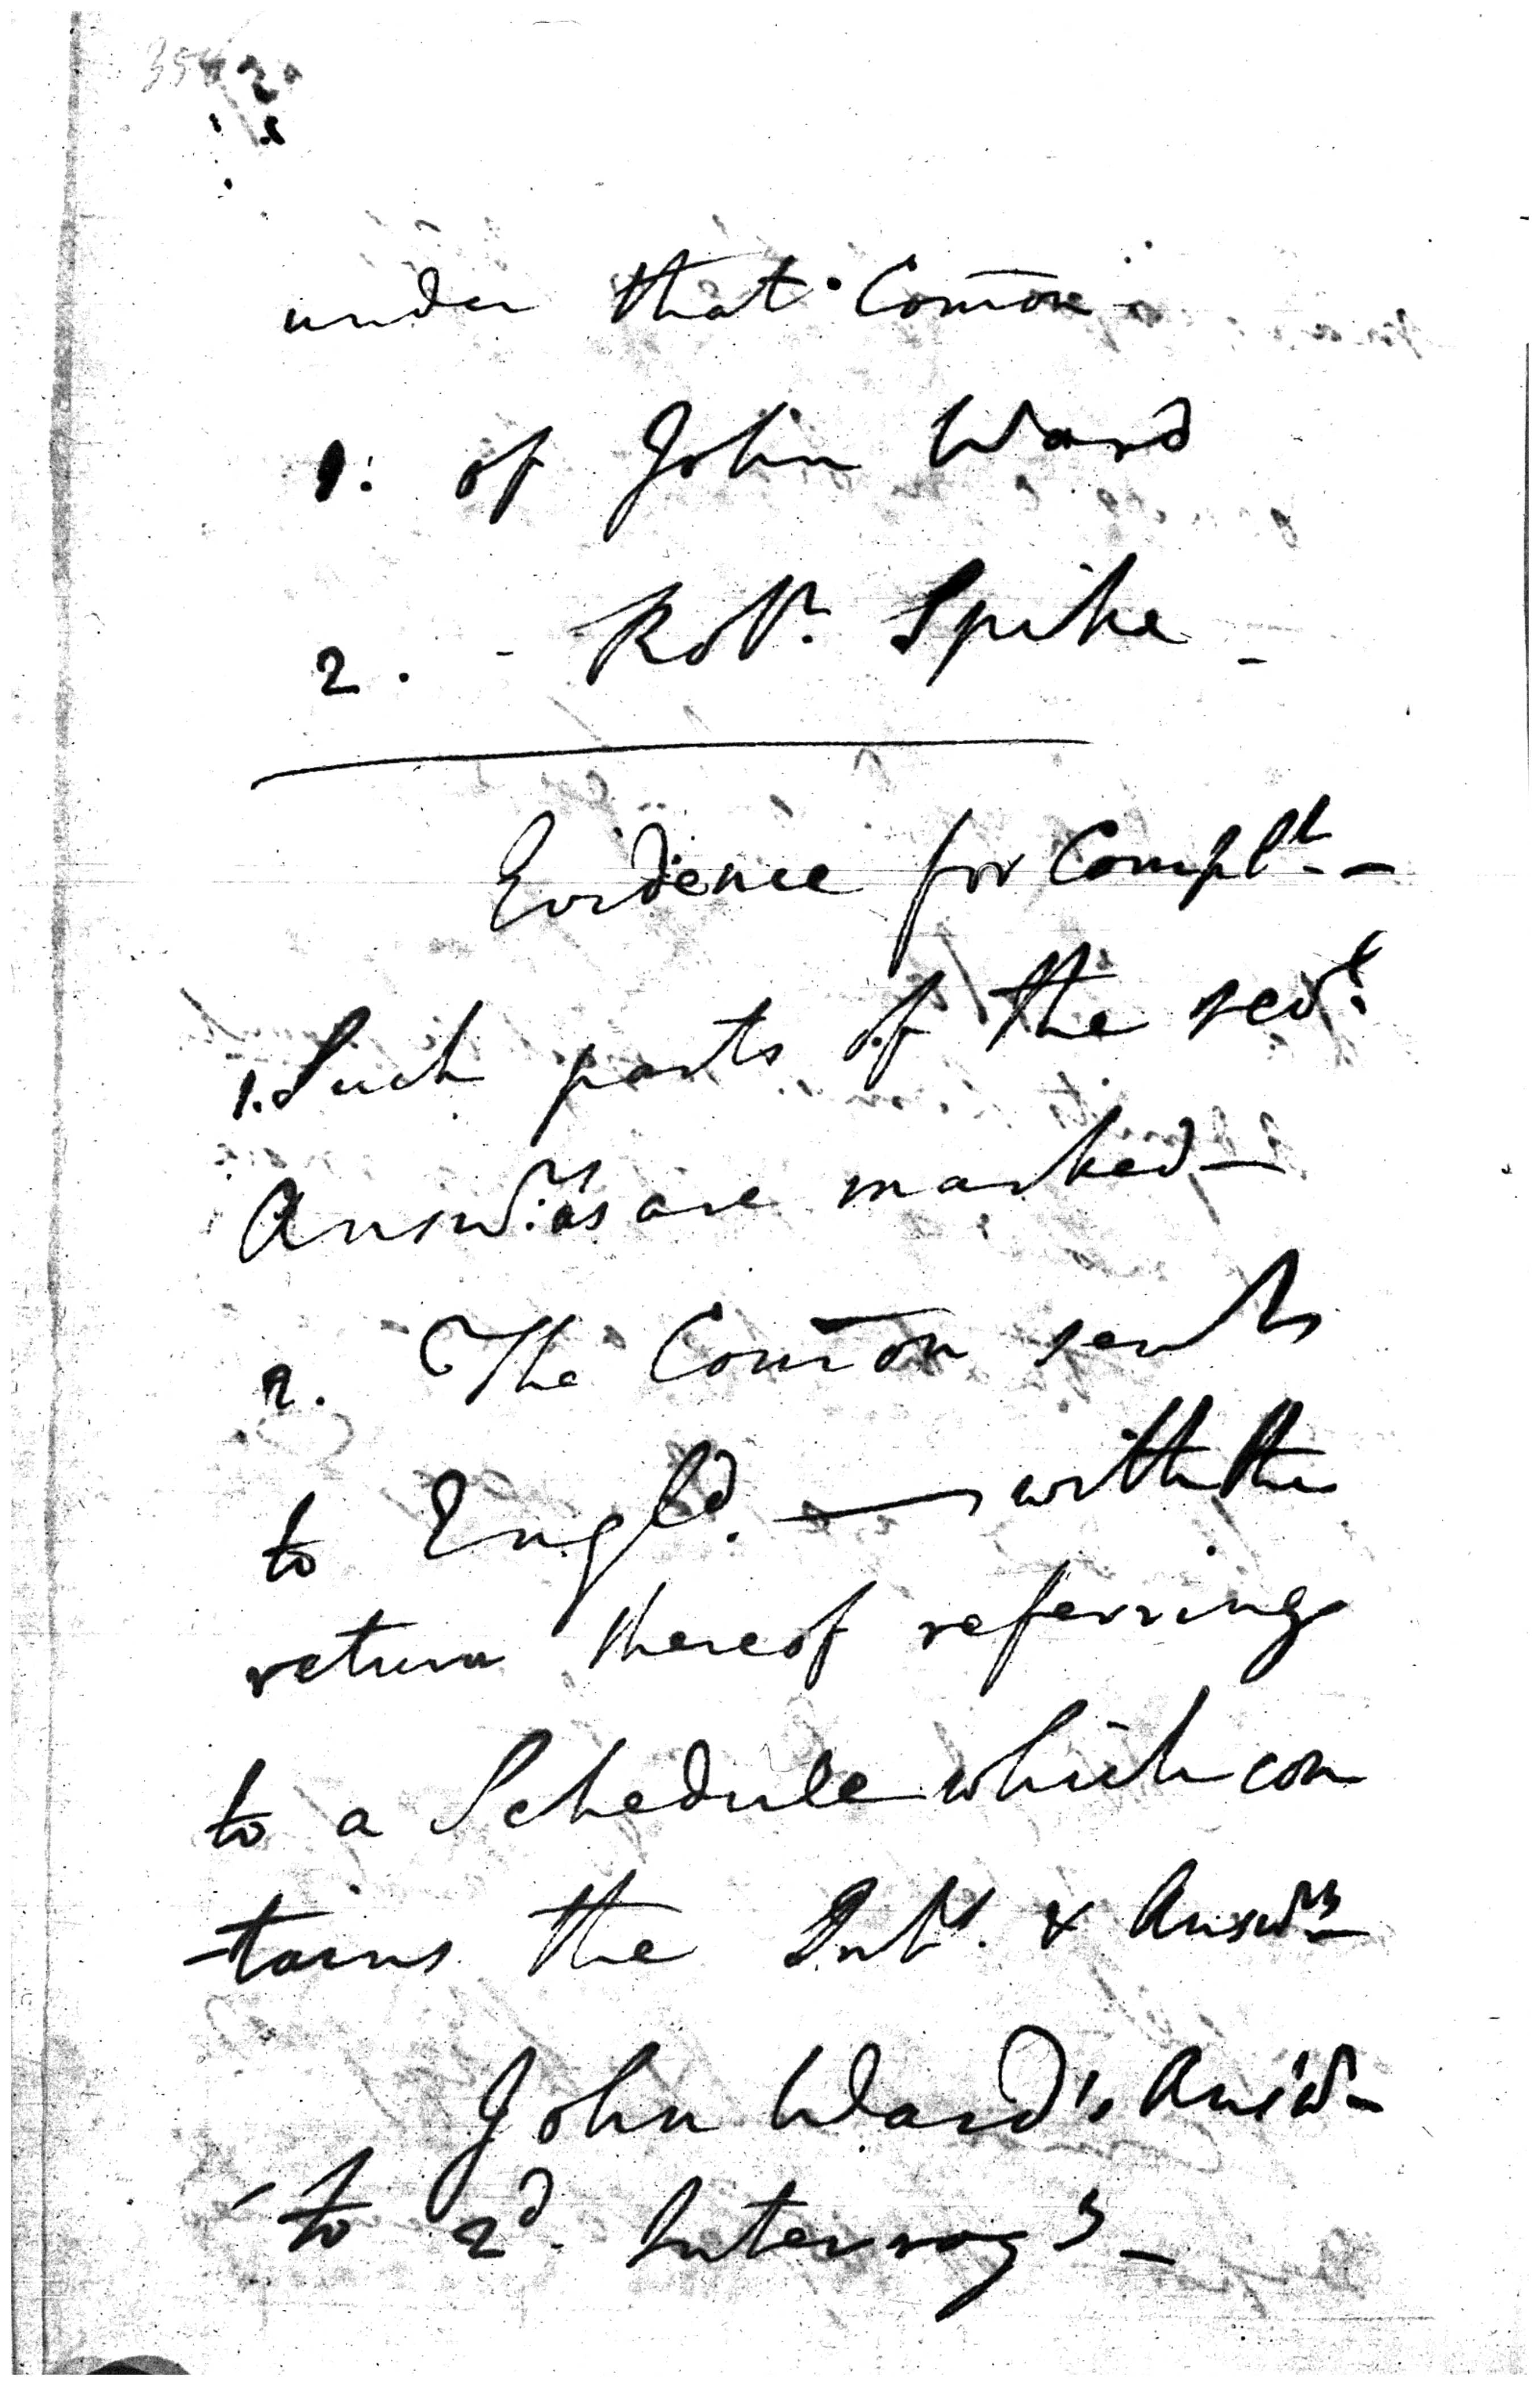 under that Comōn
1. of John Ward
2. - Robt. Spike -
Evidence for Complt. -
1. Such parts of the sevl.
Answrs. as are marked -
2. The Comōn sent
to Engld. — with the
return thereof referring
to a Schedule which con
-tains the Ints. & Answrs. -
John Ward's Answ -
- to 2d. Interrogy -